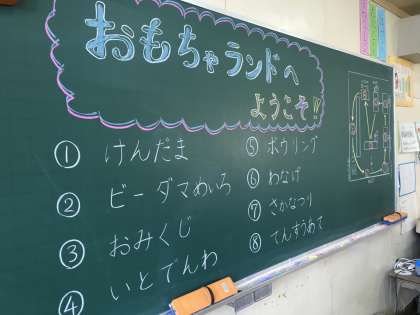 おもちゃランドへ
ようこそ!!
① けんだま
② ビーダマめいろ
③ おみくじ
④ いとでんわ
⑤ ボウリング
⑥ わなげ
⑦ さかなつり
⑧ てんすうあて